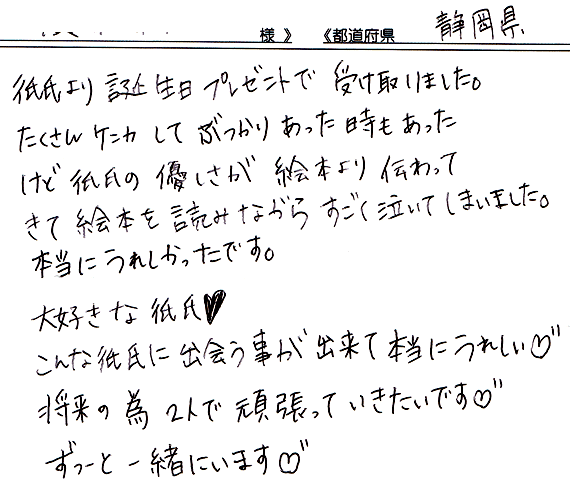 様 》 《都道府県 静岡県
彼氏より 誕生日 プレゼントで 受け取りました。
たくさん ケンカ して ぶつかり あった 時も あった
けど 彼氏の 優しさが 絵本より 伝わって
きて 絵本を 読みながら すごく 泣いて しまいました。
本当に うれしかったです。
大好きな 彼氏♥
こんな彼氏に 出会う事が 出来て 本当に うれしい♡"
将来の 為 2人で 頑張って いきたいです♡"
ずっーと 一緒にいます♡"